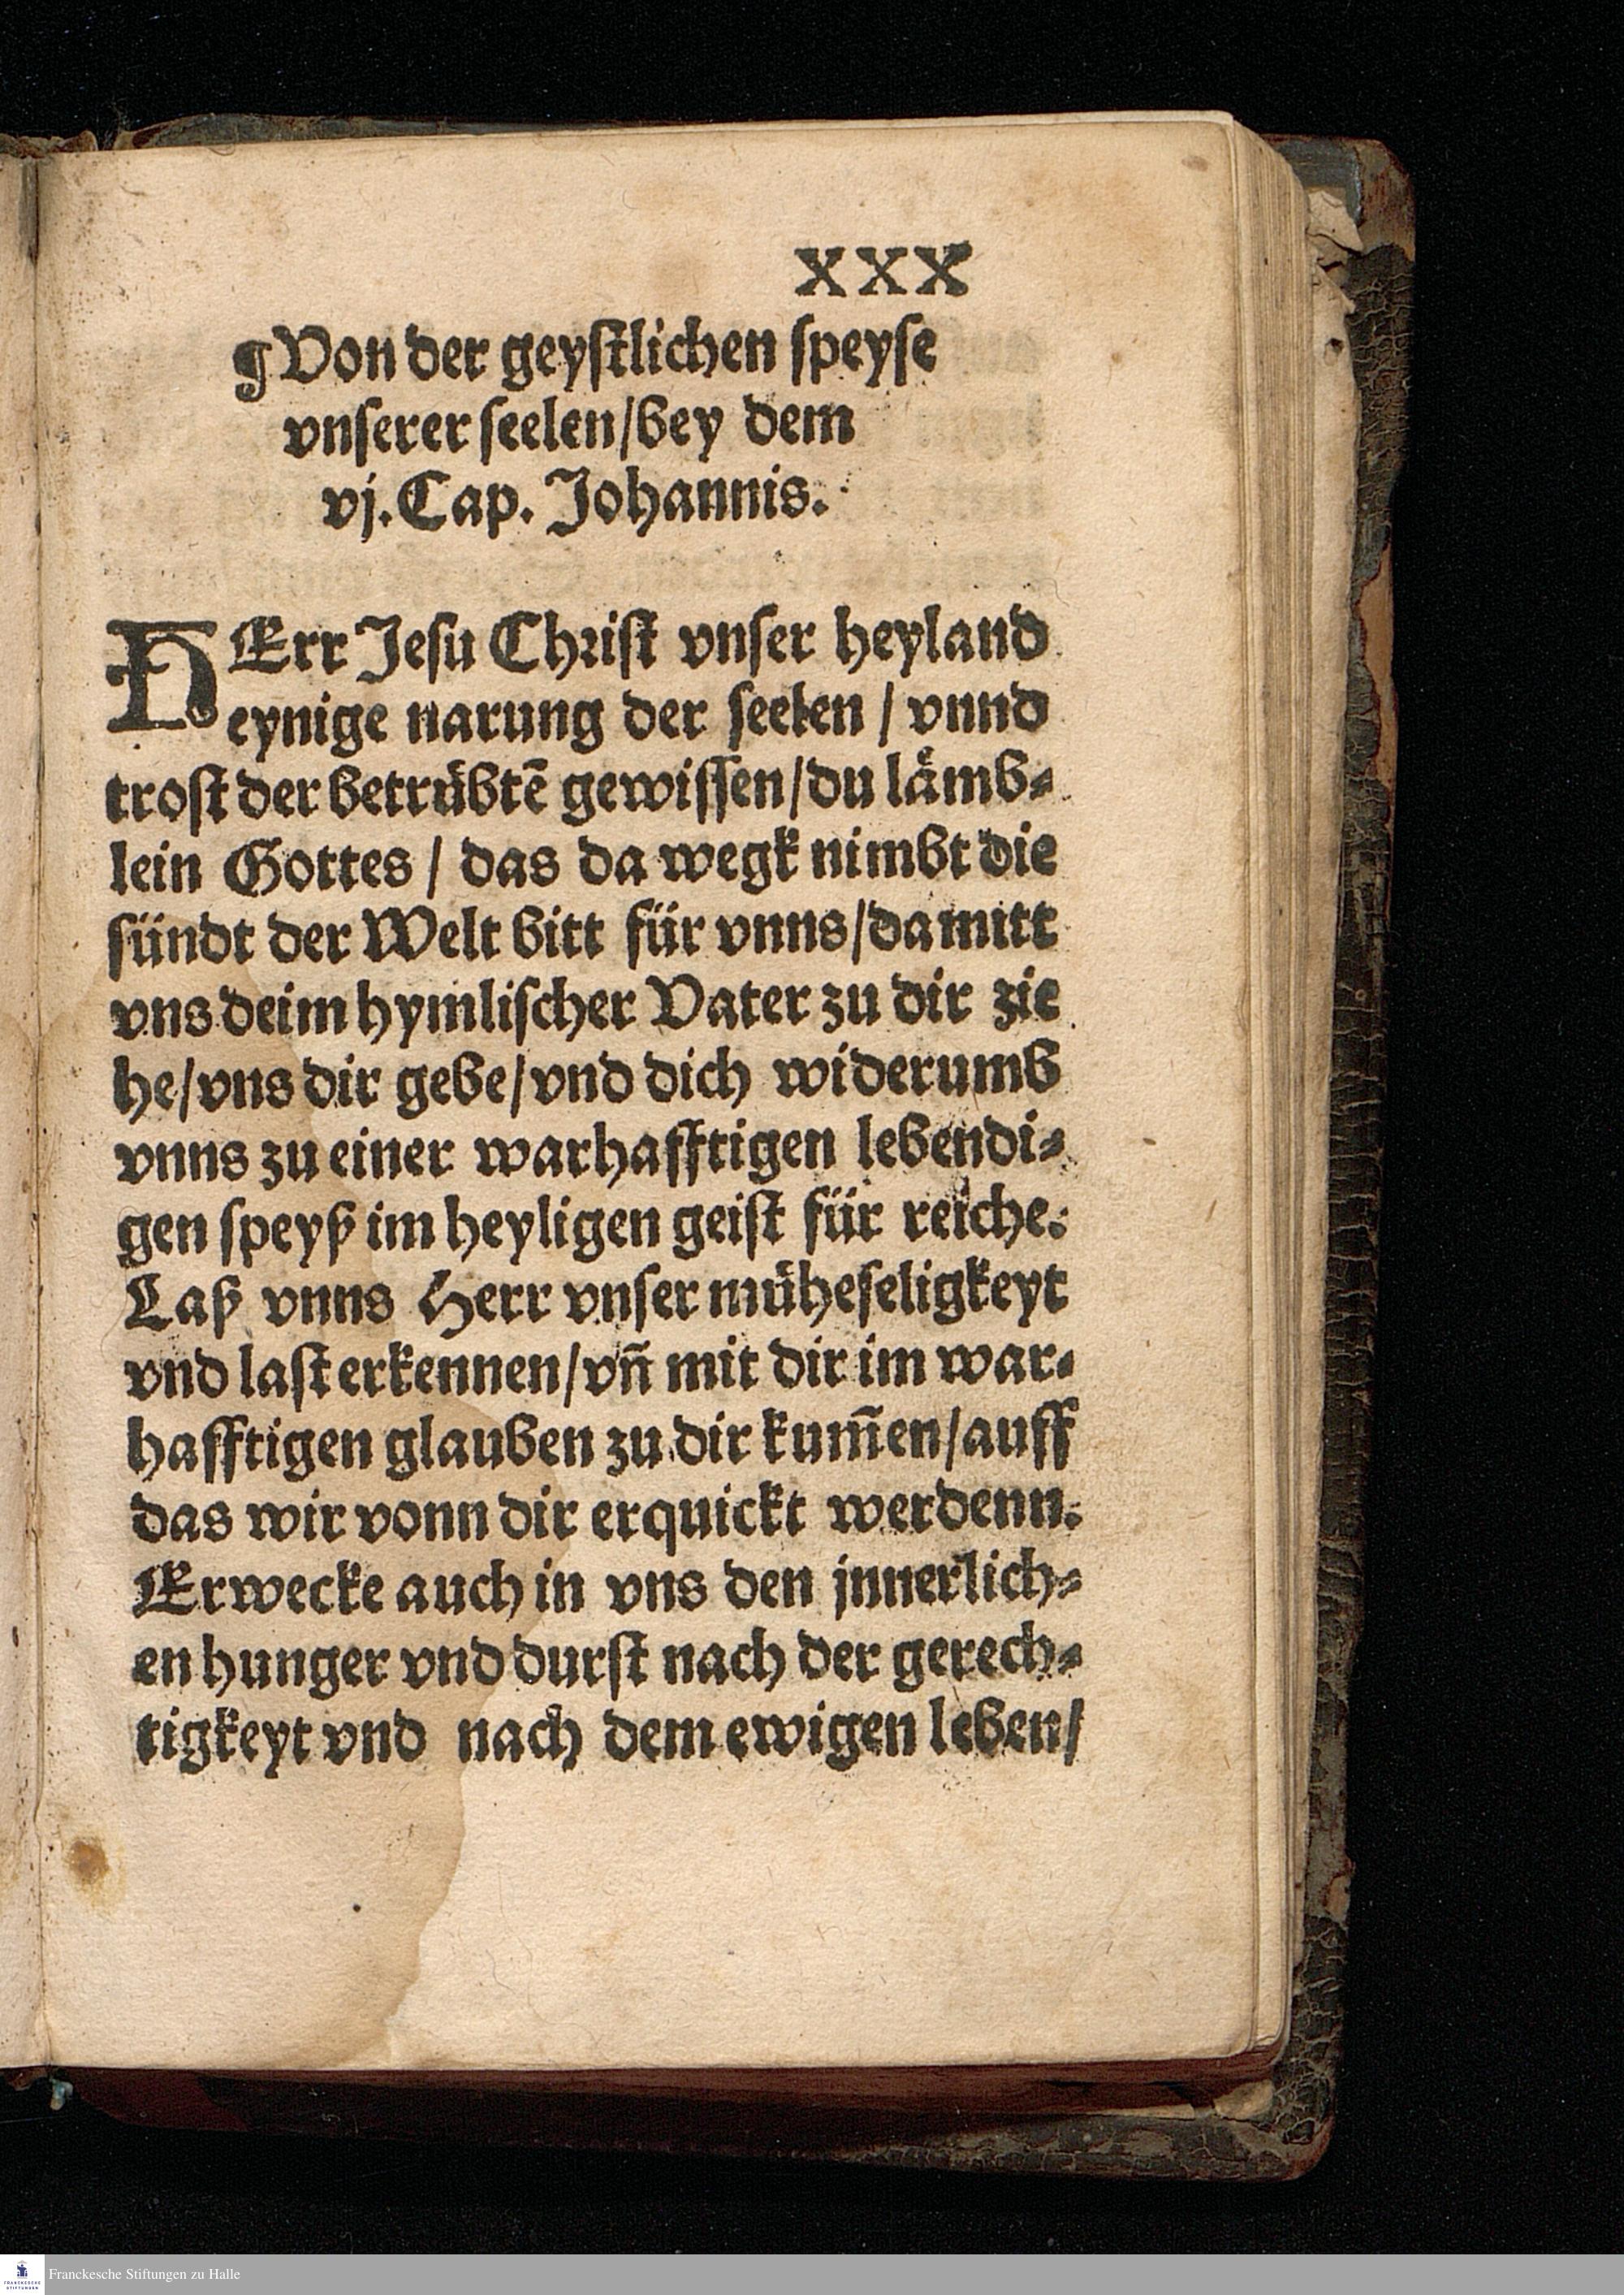 XXX
¶Von der geystlichen speyse
vnserer seelen/bey dem
vj. Cap. Johannis.
HErr Jesu Christ vnser heyland
eynige narung der seelen / vnnd
trost der betrübtē gewissen/du lämb-
lein Gottes / das da wegk nimbt die
sündt der Welt bitt für vnns/damitt
vns deim hymlischer Vater zu dir zie
he/vns dir gebe/vnd dich widerumb
vnns zu einer warhafftigen lebendi-
gen speyß im heyligen geist für reiche.
Laß vnns Herr vnser müheseligkeyt
vnd last erkennen/vñ mit dir im war-
hafftigen glauben zu dir kum̄en/auff
das wir vonn dir erquickt werdenn.
Erwecke auch in vns den jnnerlich-
en hunger vnd durst nach der gerech-
tigkeyt vnd nach dem ewigen leben/
FRANCKESCHE
STIFTUNGEN
Franckesche Stiftungen zu Halle